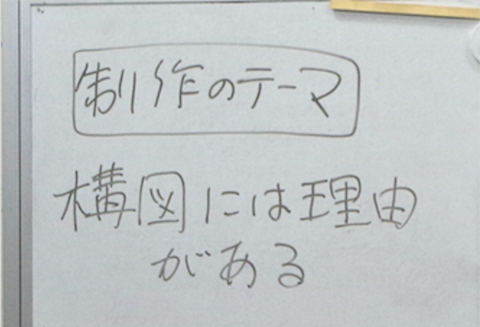 制作のテーマ
構図には理由
がある